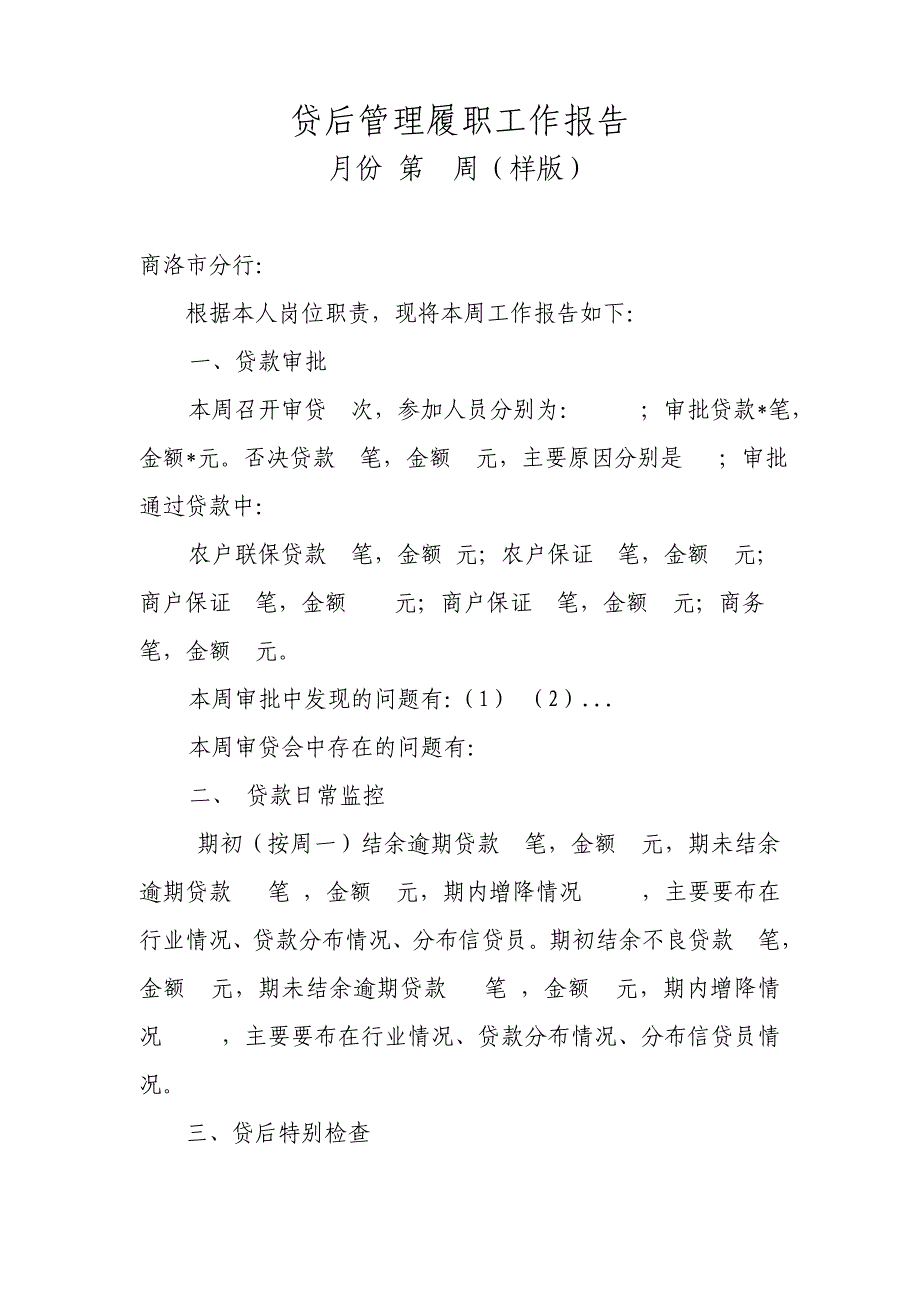 贷后管理履职工作报告
月份 第　周（样版）
商洛市分行：
根据本人岗位职责，现将本周工作报告如下：
一、贷款审批
本周召开审贷　次，参加人员分别为：　　　；审批贷款*笔，
金额*元。否决贷款　笔，金额　元，主要原因分别是　；审批
通过贷款中：
农户联保贷款　笔，金额 元；农户保证　笔，金额　元；
商户保证　笔，金额　　元；商户保证　笔，金额　元；商务
笔，金额　元。
本周审批中发现的问题有：（1）　（2）...
本周审贷会中存在的问题有：
二、 贷款日常监控
期初（按周一）结余逾期贷款　笔，金额　元，期未结余
逾期贷款　 笔 ，金额　元，期内增降情况　　　，主要要布在
行业情况、贷款分布情况、分布信贷员。期初结余不良贷款　笔，
金额　元，期未结余逾期贷款　 笔 ，金额　元，期内增降情
况　　　，主要要布在行业情况、贷款分布情况、分布信贷员情
况。
三、贷后特别检查